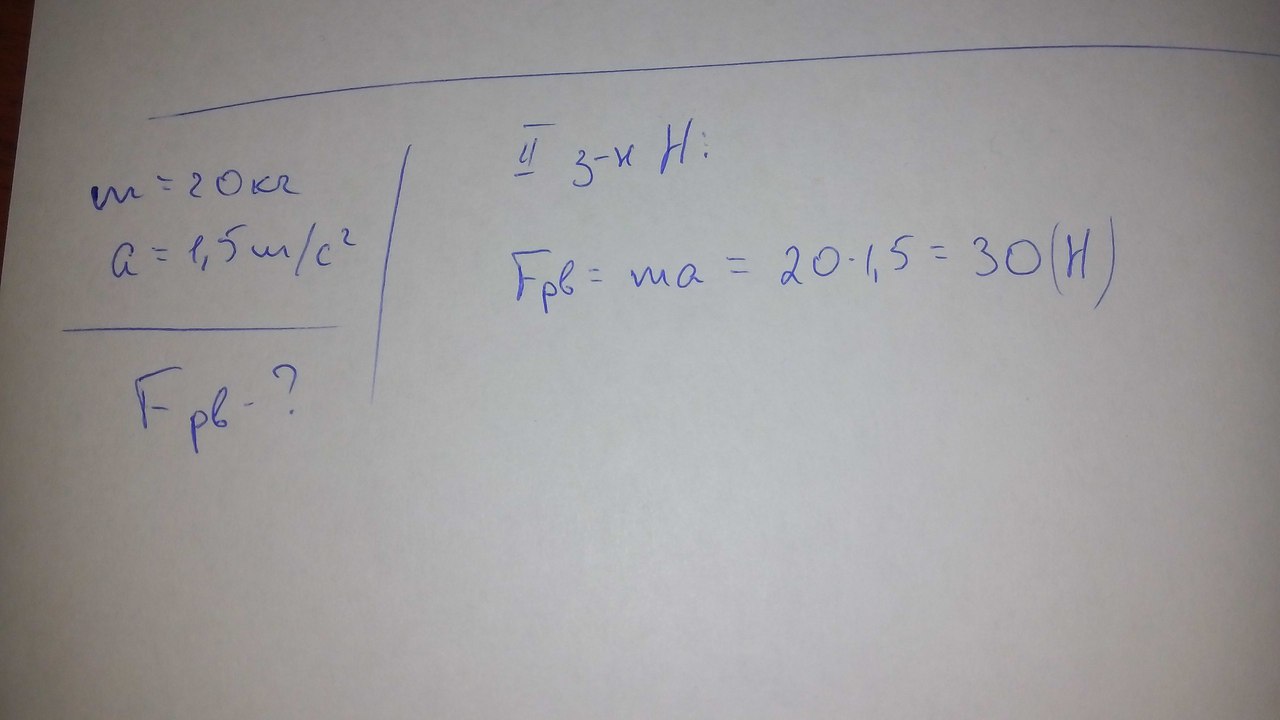 m = 20 кг
a = 1,5 м/с²
Fрв - ?
II з-н Н:
Fрв = ma = 20·1,5 = 30(Н)